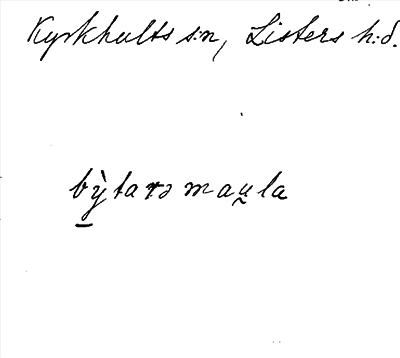 Kyrkhults s:n, Listers h:d.
bỳtarə mau̯la